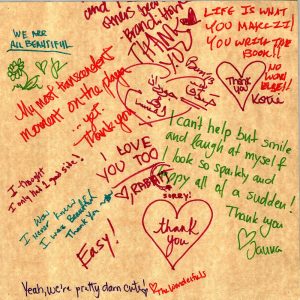 and I
others bear
Brand
THANK
YOU
LIFE IS WHAT
YOU MAKE IT!
YOU WRITE THE
BOOK!!
NO
WORD
ELSE!!
Thank
you
Kotu
WE ARE
ALL BEAUTIFUL
My most transcendent
moment on the playa
...yet.
Thank you
I can't help but smile
and laugh at myself
I look so sparkly and
happy all of a sudden!
Thank you
I LOVE
YOU TOO
SORRY!
thank
you
I thought
I only had 2 good sides!
I Now
Never Knew
I was Beautiful
Thank you
Easy!
Yeah, we're pretty darn cute!
The Wonderfuls